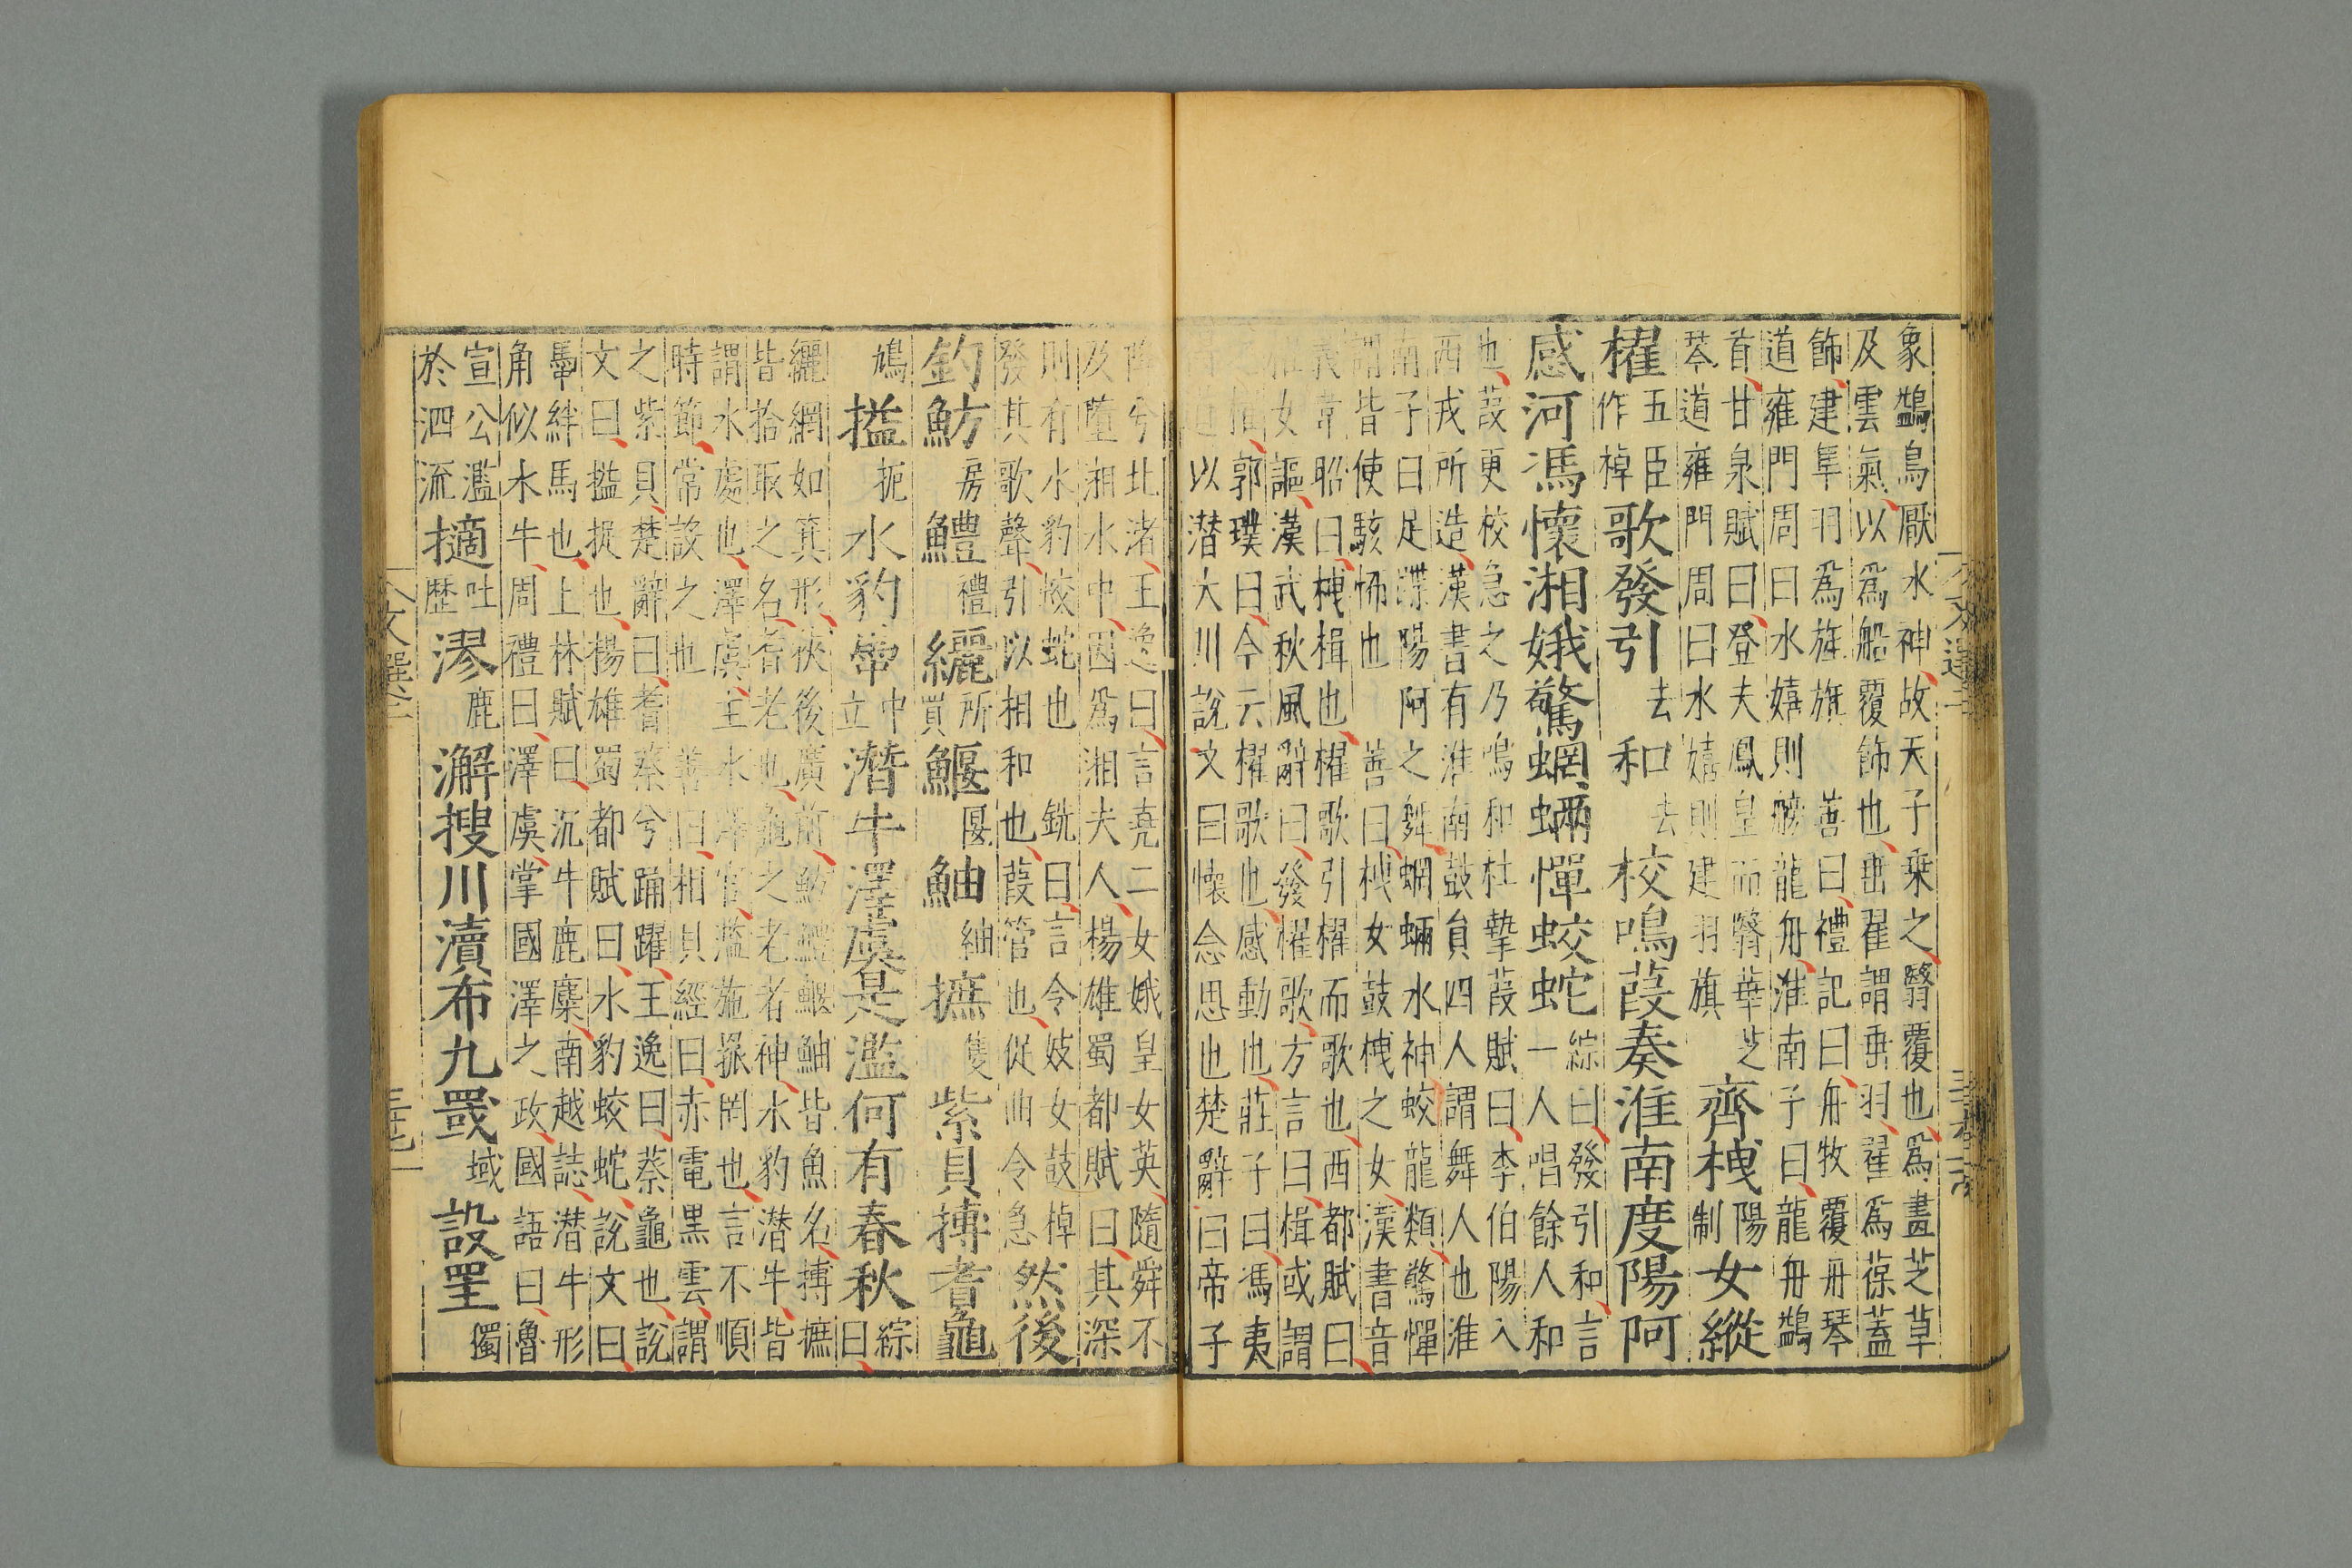 象鷁鳥厭水神故天子乗之翳覆也爲畫芝草
及雲氣以爲船覆飾也垂翟謂垂羽翟爲葆蓋
飾建隼羽爲旌旗 善曰禮記曰舟牧覆舟琴
道雍門周曰水嬉則舫龍舟淮南子曰龍舟鷁
首甘泉賦曰登夫鳳皇而翳華芝
琴道雍門周曰水嬉則建羽旗
齊栧陽制女縱
櫂五臣作棹歌發引去和去校鳴葭奏淮南度陽阿
感河馮懷湘娥驚蝄蜽憚蛟蛇
綜曰發引和言
一人唱餘人和
也葭更校急之乃鳴和杜摯葭賦曰李伯陽入
西戎所造漢書有淮南鼓員四人謂舞人也淮
南子曰足蹀陽阿之舞蝄蜽水神蛟龍類驚憚
謂皆使駭怖也 善曰栧女鼓栧之女漢書音
義韋昭曰栧楫也櫂歌引櫂而歌也西都賦曰
櫂女謳漢武秋風辭曰發櫂歌方言曰楫或謂
之櫂郭璞曰今云櫂歌也感動也莊子曰馮夷
以潜大川說文曰懷念思也楚辭曰帝子
降兮北渚王逸曰言堯二女娥皇女英隨舜不
及墮湘水中因爲湘夫人楊雄蜀都賦曰其深
則有水豹蛟蛇也 銑曰言令妓女鼓棹
發其歌聲引以相和也葭管也促曲令急
然後
釣魴房鱧禮纚所買鰋偃鮋紬摭隻紫貝搏耆龜
鳩搤扼水豹馽中立潜牛澤虞是濫何有春秋綜曰
纚網如箕形狹後廣前魴鱧鰋鮋皆魚名搏摭
皆拾取之名耆老也龜之老者神水豹潜牛皆
謂水處也澤虞主水澤官濫施罛罔也言不順
時節常設之也 善曰相貝經曰赤電黑雲謂
之紫貝楚辭曰耆蔡兮踊躍王逸曰蔡龜也說
文曰搤捉也楊雄蜀都賦曰水豹蛟蛇說文曰
馽絆馬也上林賦曰沉牛鹿麋南越誌潜牛形
角似水牛周禮曰澤虞掌國澤之政國語曰魯
宣公濫
於泗流
擿吐歷漻鹿澥搜川瀆布九罭域設罜獨